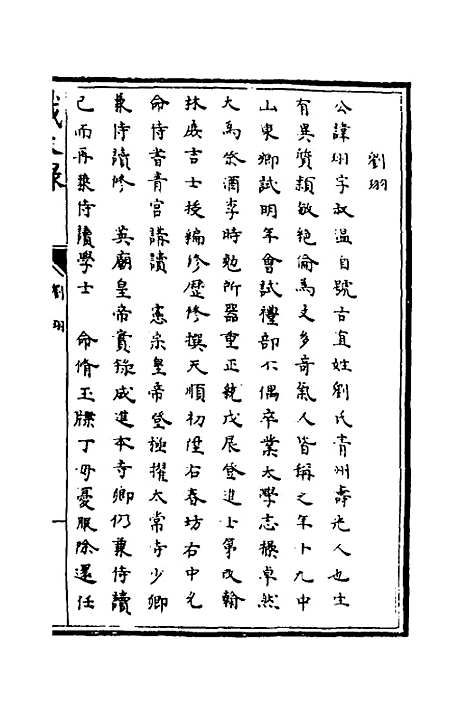 劉珝
公諱珝字叔溫自號古直姓劉氏青州壽光人也生
有異質穎敏絕倫為文多奇氣人皆稱之年十九中
山東鄉試明年會試禮部不偶卒業太學志操卓然
大為祭酒李時勉所器重正統戊辰登進士第改翰
林庶吉士授編修歷修撰天順初陞右春坊右中允
命侍皆青宮講讀 憲宗皇帝登極擢太常寺少卿
兼侍讀修 英廟皇帝實錄成進本寺卿仍兼侍讀
已而再兼侍讀學士 命脩玉牒丁母憂服除還任
劉珝
一